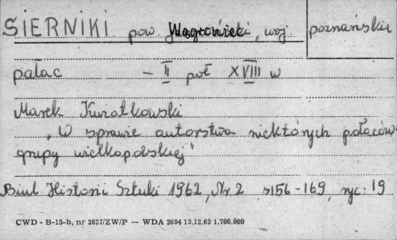 SIERNIKI pow. Wągrowiecki, woj. poznańskie
pałac – II poł XVIII w
Marek Kwiatkowski
„W sprawie autorstwa niektórych pałaców
grupy wielkopolskiej"
Biul Historii Sztuki 1962, Nr. 2 s156-169, ryc: 19
CWD - B-15-b, nr 2827/ZW/P — WDA 2694 13.12.62 1.700.000